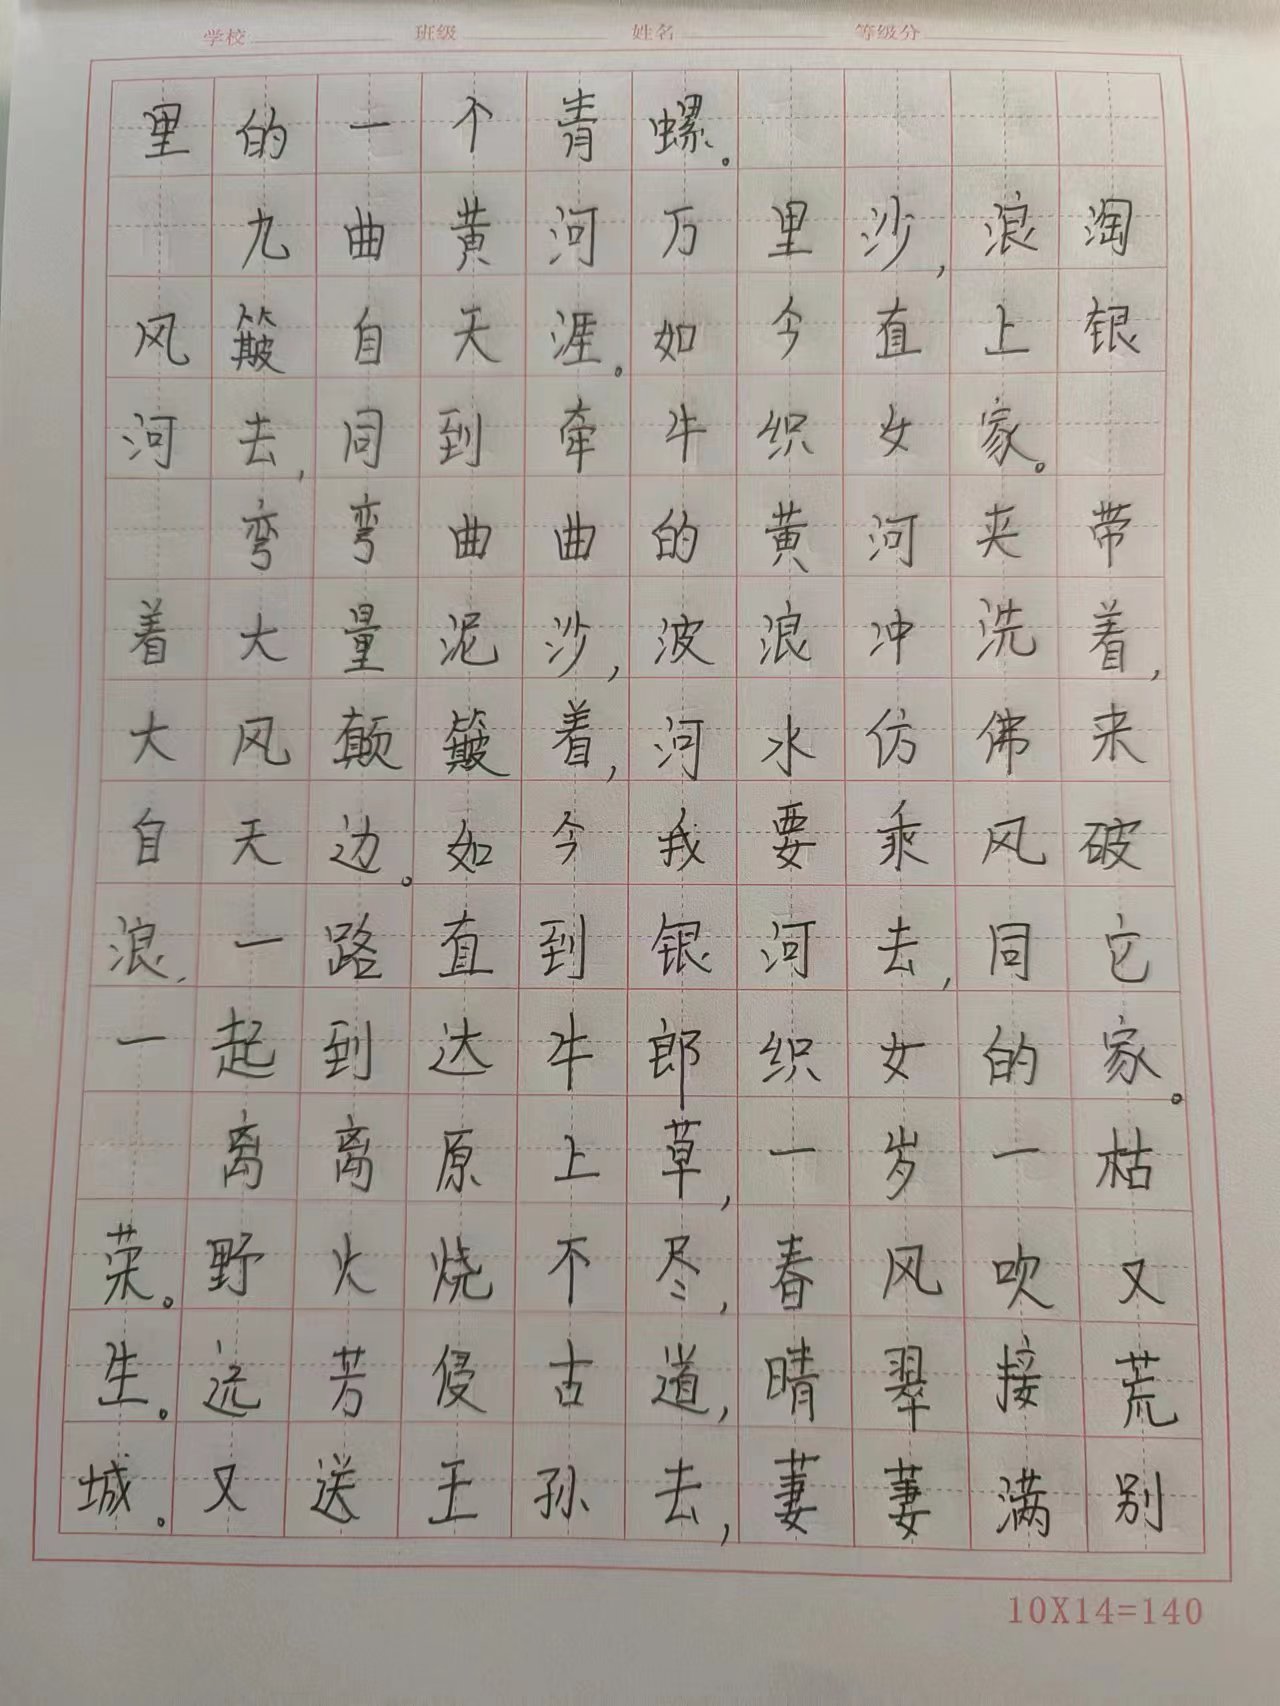 学校 班级 姓名 等级分
里的一个青螺。
九曲黄河万里沙,浪淘
风簸自天涯。如今直上银
河去,同到牵牛织女家。
弯弯曲曲的黄河夹带
着大量泥沙,波浪冲洗着,
大风颠簸着,河水仿佛来
自天边。如今我要乘风破
浪,一路直到银河去,同它
一起到达牛郎织女的家。
离离原上草,一岁一枯
荣。野火烧不尽,春风吹又
生。远芳侵古道,晴翠接荒
城。又送王孙去,萋萋满别
10X14=140